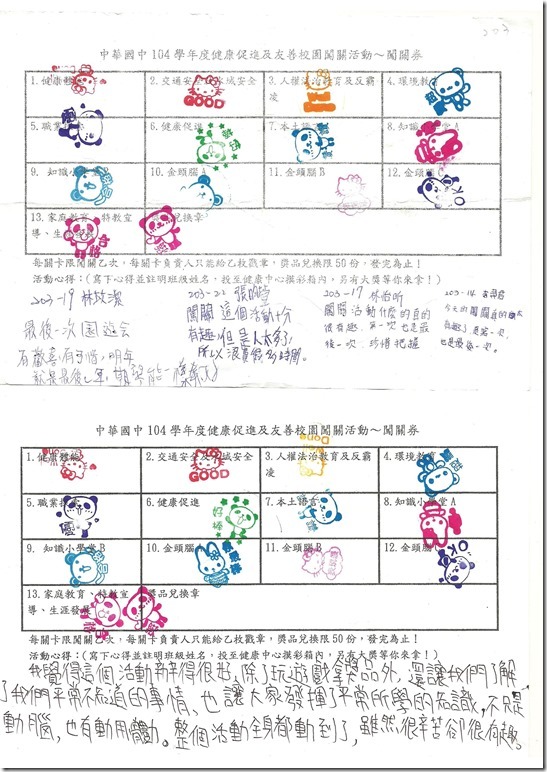 203
中華國中 104 學年度健康促進及友善校園闖關活動～闖關券
1.健康 2.交通安全及水域安全 3.人權法治教育及反霸凌 4.環境教
5.職業 6.健康促進 7.本土語 8.知識小學堂A
9. 知識小學 10.金頭腦A 11.金頭腦B 12.金頭腦C
13.家庭教育、特教宣導、生 獎品兌換章
GOOD
OK
合格
每關卡限闖關乙次，每關卡負責人只能給乙枚戳章，獎品兌換限50份，發完為止！
活動心得：(寫下心得並註明班級姓名，投至健康中心摸彩箱內，另有大獎等你來拿！)
203-19 林
最後一次園遊會
有歡喜有
203-22 張
闖關這個活動十分
有趣,但是人太多了,
所以浪費很多時間。
203-17 林怡昕
闖關活動什麼的真的
很有趣,第一次也是最
後一次,珍惜把握
203-14
今天的闖關真的
有趣,
也是最後一次。
中華國中 104 學年度健康促進及友善校園闖關活動～闖關券
1.健康體 2.交通安全及水域安全 3.人權法治教育及反霸凌 4.環境教育
5.職業 6.健康促進 7.本土語言 8.知識小學堂A
9. 知識小學堂B 10.金頭腦A 11.金頭腦B 12.金頭腦
13.家庭教育、特教宣導、生涯發展 獎品兌換章
GOOD
Done
好棒
優
OK
每關卡限闖關乙次，每關卡負責人只能給乙枚戳章，獎品兌換限50份，發完為止！
活動心得：(寫下心得並註明班級姓名，投至健康中心摸彩箱內，另有大獎等你來拿！)
我覺得這個活動辦得很好,除了玩遊戲拿獎品外,還讓我們了解
了我們平常不知道的事情、也讓大家發揮了平常所學的知識,不只是
動腦,也有動用體力。整個活動全身都動到了,雖然很辛苦卻很有趣。